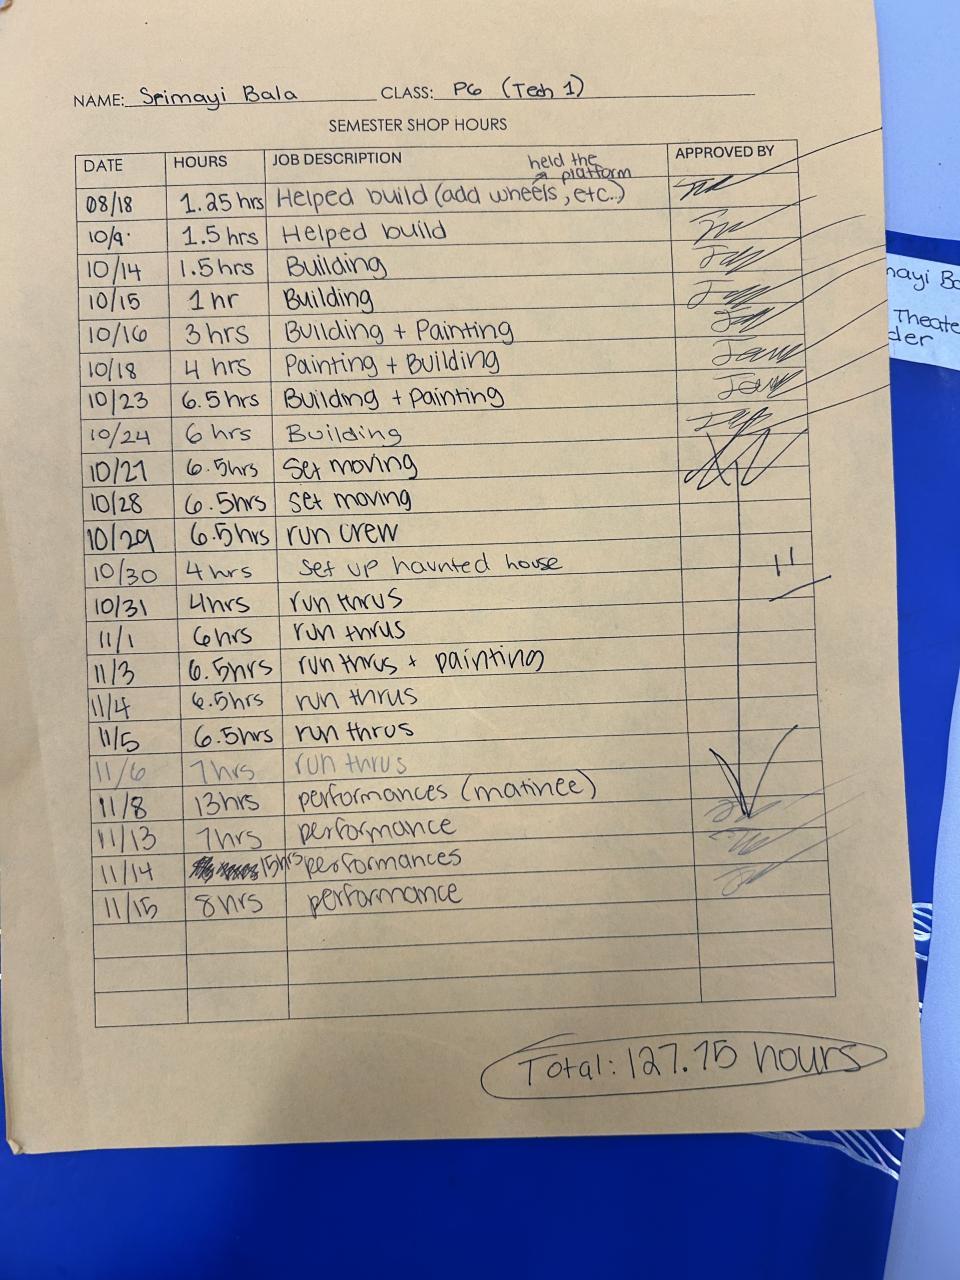 NAME: Srimayi Bala CLASS: P6 (Tech 1)
SEMESTER SHOP HOURS
DATE HOURS JOB DESCRIPTION APPROVED BY
held the platform
08/18 1.25 hrs Helped build (add wheels, etc..)
10/9 1.5 hrs Helped build
10/14 1.5 hrs Building
10/15 1 hr Building
10/16 3 hrs Building + Painting
10/18 4 hrs Painting + Building
10/23 6.5 hrs Building + Painting
10/24 6 hrs Building
10/27 6.5hrs set moving
10/28 6.5hrs set moving
10/29 6.5hrs run crew
10/30 4 hrs set up haunted house 11
10/31 4hrs run thrus
11/1 6hrs run thrus
11/3 6.5hrs run thrus + painting
11/4 6.5hrs run thrus
11/5 6.5hrs run thrus
11/6 7hrs run thrus
11/8 13hrs performances (matinee)
11/13 7hrs performance
11/14 15hrs performances
11/15 8hrs performance
Total: 127.75 hours
mayi Ba
Theate
der